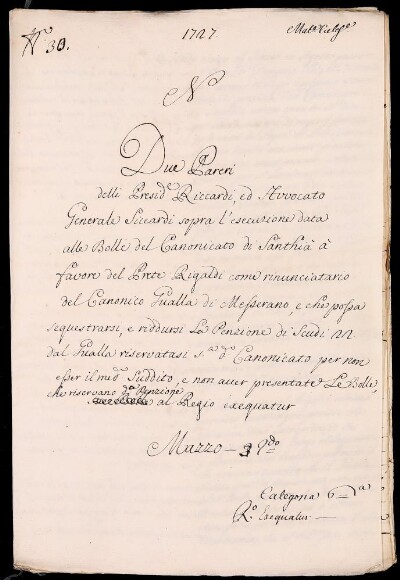 N.º 30.
1727.
N
Due Pareri
delli Presid.e Riccardi, ed Avvocato
Generale Siccardi sopra l'esecuzione data
alle Bolle del Canonicato di Santhià à
favore del Prete Rigaldi come rinunciatario
del Canonico Gualla di Messerano, e che possa
sequestrarsi, e riddursi La Penzione di Scudi
dal Gualla riservatasi Canonicato per non
esser il med.o Suddito, e non aver presentate Le Bolle,
che riservano d.a Penzione
al Regio exequatur
Mazzo 3 do
Categoria 6 a
R.o Exequatur